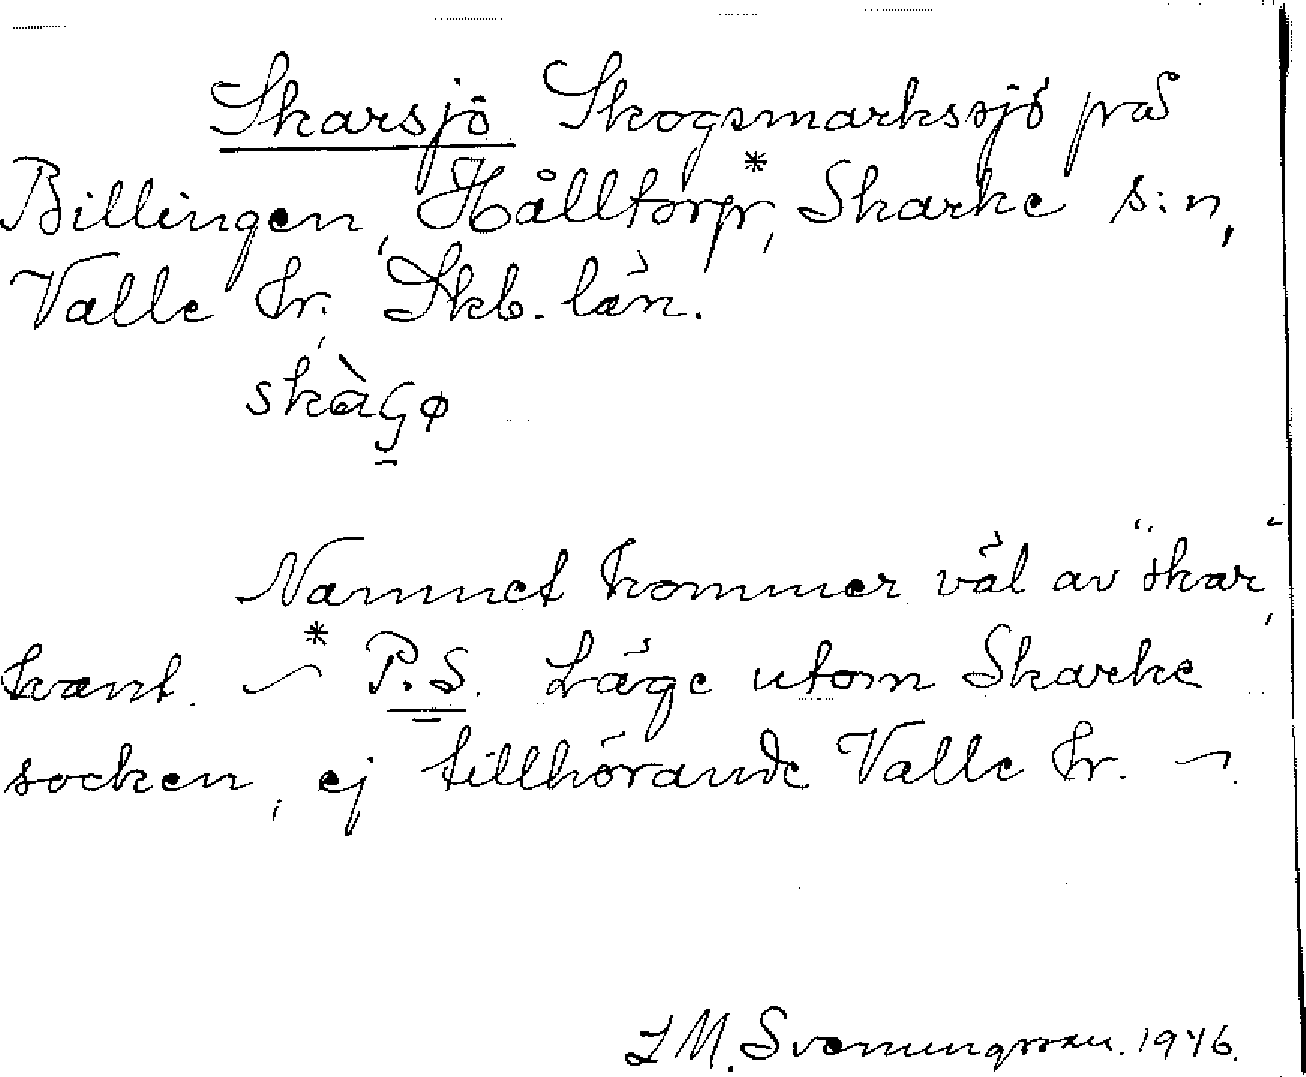 Skarsjö Skogsmarkssjö på
Billingen, Hålltorp,* Skarke s:n,
Valle hr. Skb. län.
Namnet kommer väl av "skar",
kant. * P.S. Läge utom Skarke
socken, ej tillhörande Valle hr.
Svenungsson. 1946.